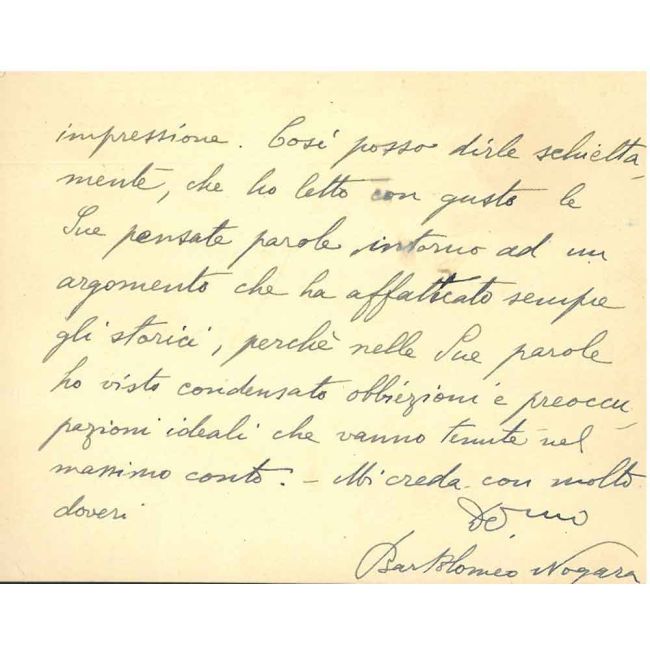 impressione. Così posso dirle schietta,
mente, che ho letto con gusto le
Sue pensate parole intorno ad un
argomento che ha affaticato sempre
gli storici, perchè nelle Sue parole
ho visto condensato obbiezioni e preoccu,
pazioni ideali che vanno tenute nel
massimo conto. - Mi creda con molto
doveri
Bartolomeo Nogara